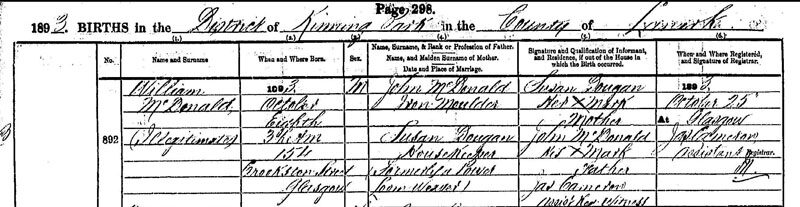 Page 298.
1893. BIRTHS in the District of Kinning Park in the County of Lanark
(1.) (2.) (3.) (4.) (5.) (6.)
No. Name and Surname When and Where Born. Sex. Name, Surname, & Rank or Profession of Father. Name, and Maiden Surname of Mother. Date and Place of Marriage. Signature and Qualification of Informant, and Residence, if out of the House in which the Birth occurred. When and Where Registered, and Signature of Registrar.
892
William
McDonald
(Illegitimate)
1893
October
Eighth
3h AM
15
Brookston Street
Glasgow
M
John McDonald
Iron Moulder
Susan Dougan
Housekeeper
Formerly Power
Loom Weaver
Susan Dougan
Her X Mark
Mother
John McDonald
His X Mark
Father
Jas Cameron
Assist Reg Witness
1893
October 25
At Glasgow
Jas Cameron
Assistant Registrar.